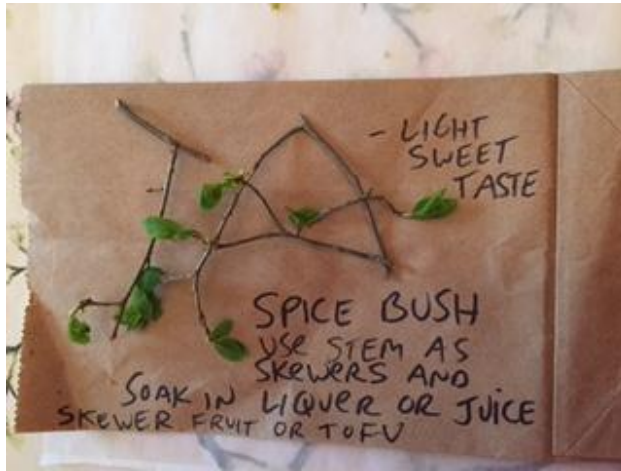 - LIGHT
SWEET
TASTE
SPICE BUSH
USE STEM AS
SKEWERS AND
SOAK IN LIQUER OR JUICE
SKEWER FRUIT OR TOFU